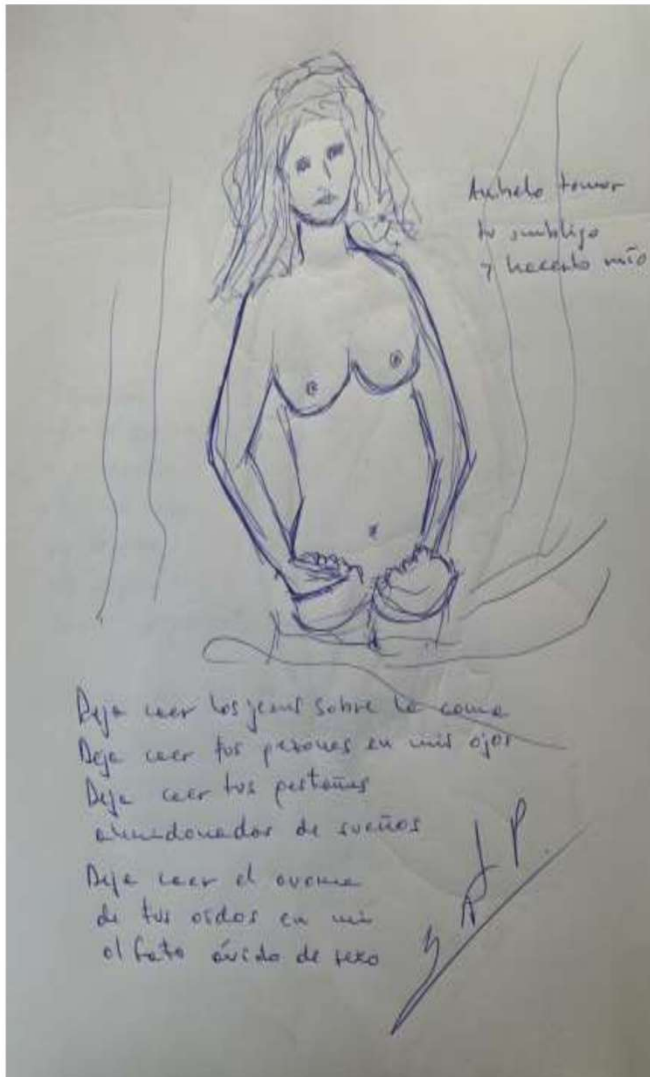 Anhelo tomar
tu ombligo
y hacerlo mío
Deja caer los jeans sobre la cama
Deja caer tus pezones en mis ojos
Deja caer tus pestañas
de sueños
Deja caer el aroma
de tus oídos en mi
olfato ávido de sexo